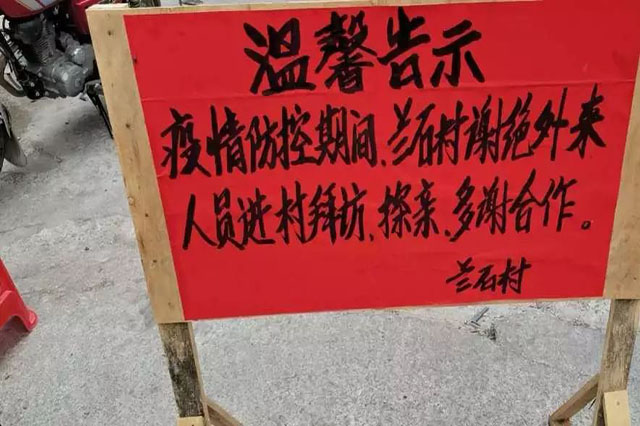 温馨告示
疫情防控期间、兰石村谢绝外来
人员进村拜访、探亲、多谢合作。
兰石村